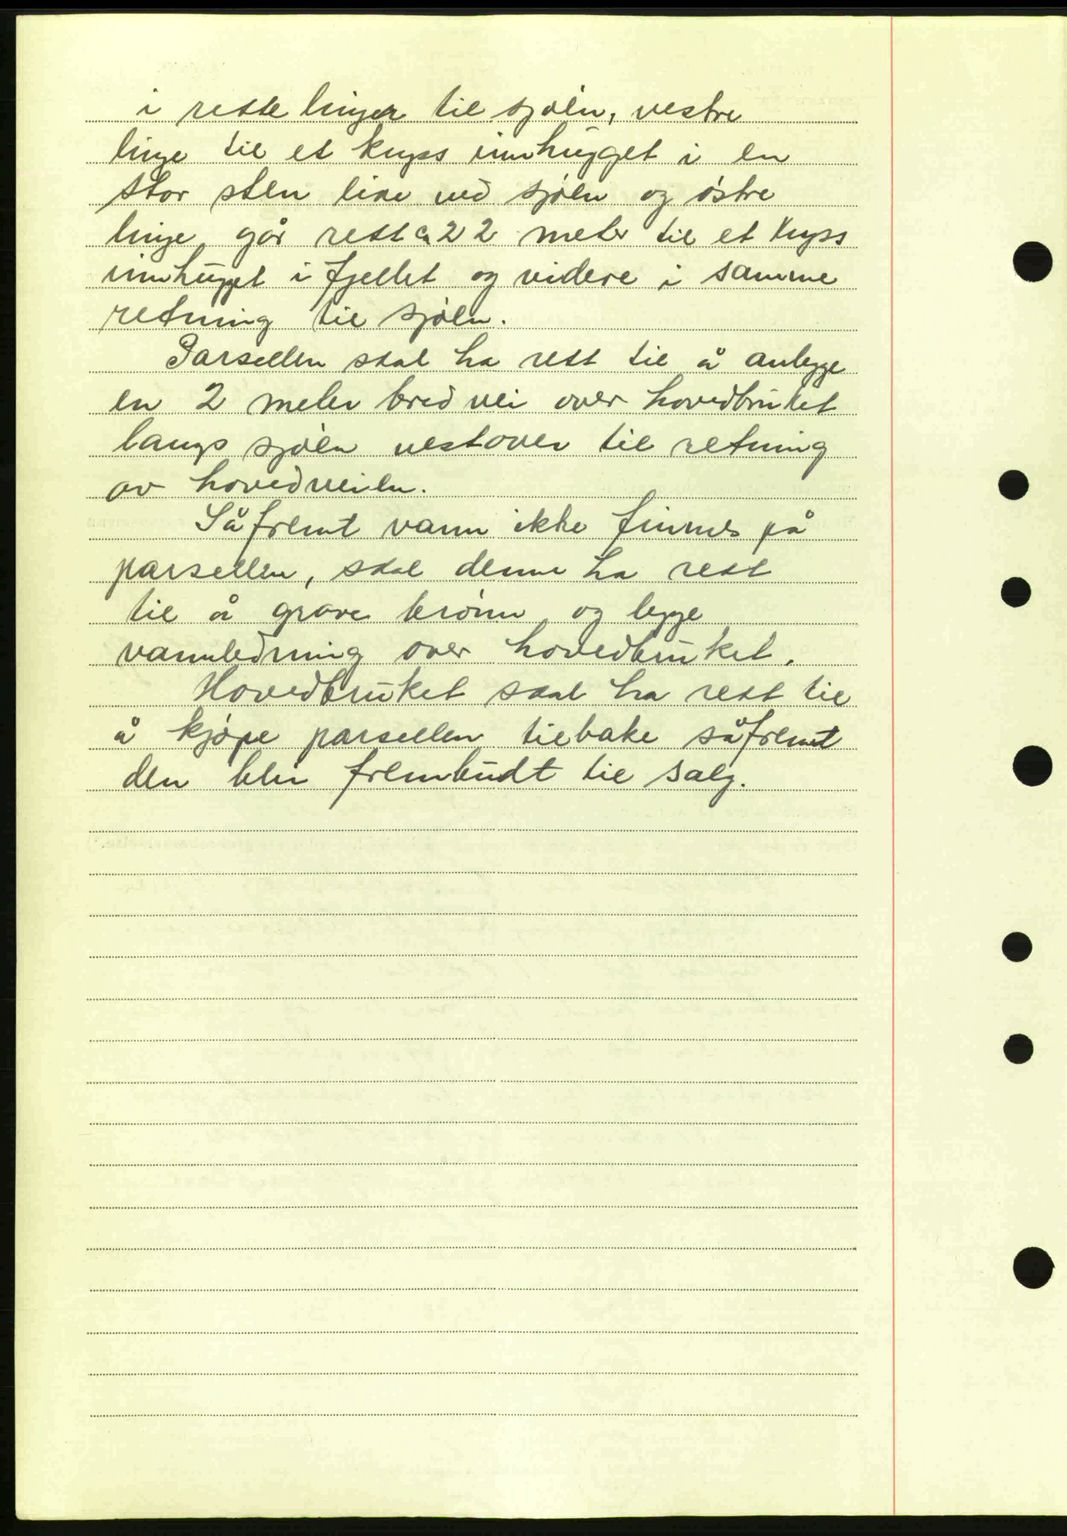 i rette linjer til sjøen, vestre
linje til et kryss innhugget i en
stor sten like ved sjøen og østre
linje går rett ca 22 meter til et kryss
innhugget i fjellet og videre i samme
retning til sjøen.
Parsellen skal ha rett til å anlegge
en 2 meter bred vei over hovedbruket
langs sjøen vestover til retning
av hovedveien.
Såfremt vann ikke finnes på
parsellen, skal denne ha rett
til å grave brønn og legge
vannledning over hovedbruket.
Hovedbruket skal ha rett til
å kjøpe parsellen tilbake såfremt
den blir frembudt til salg.